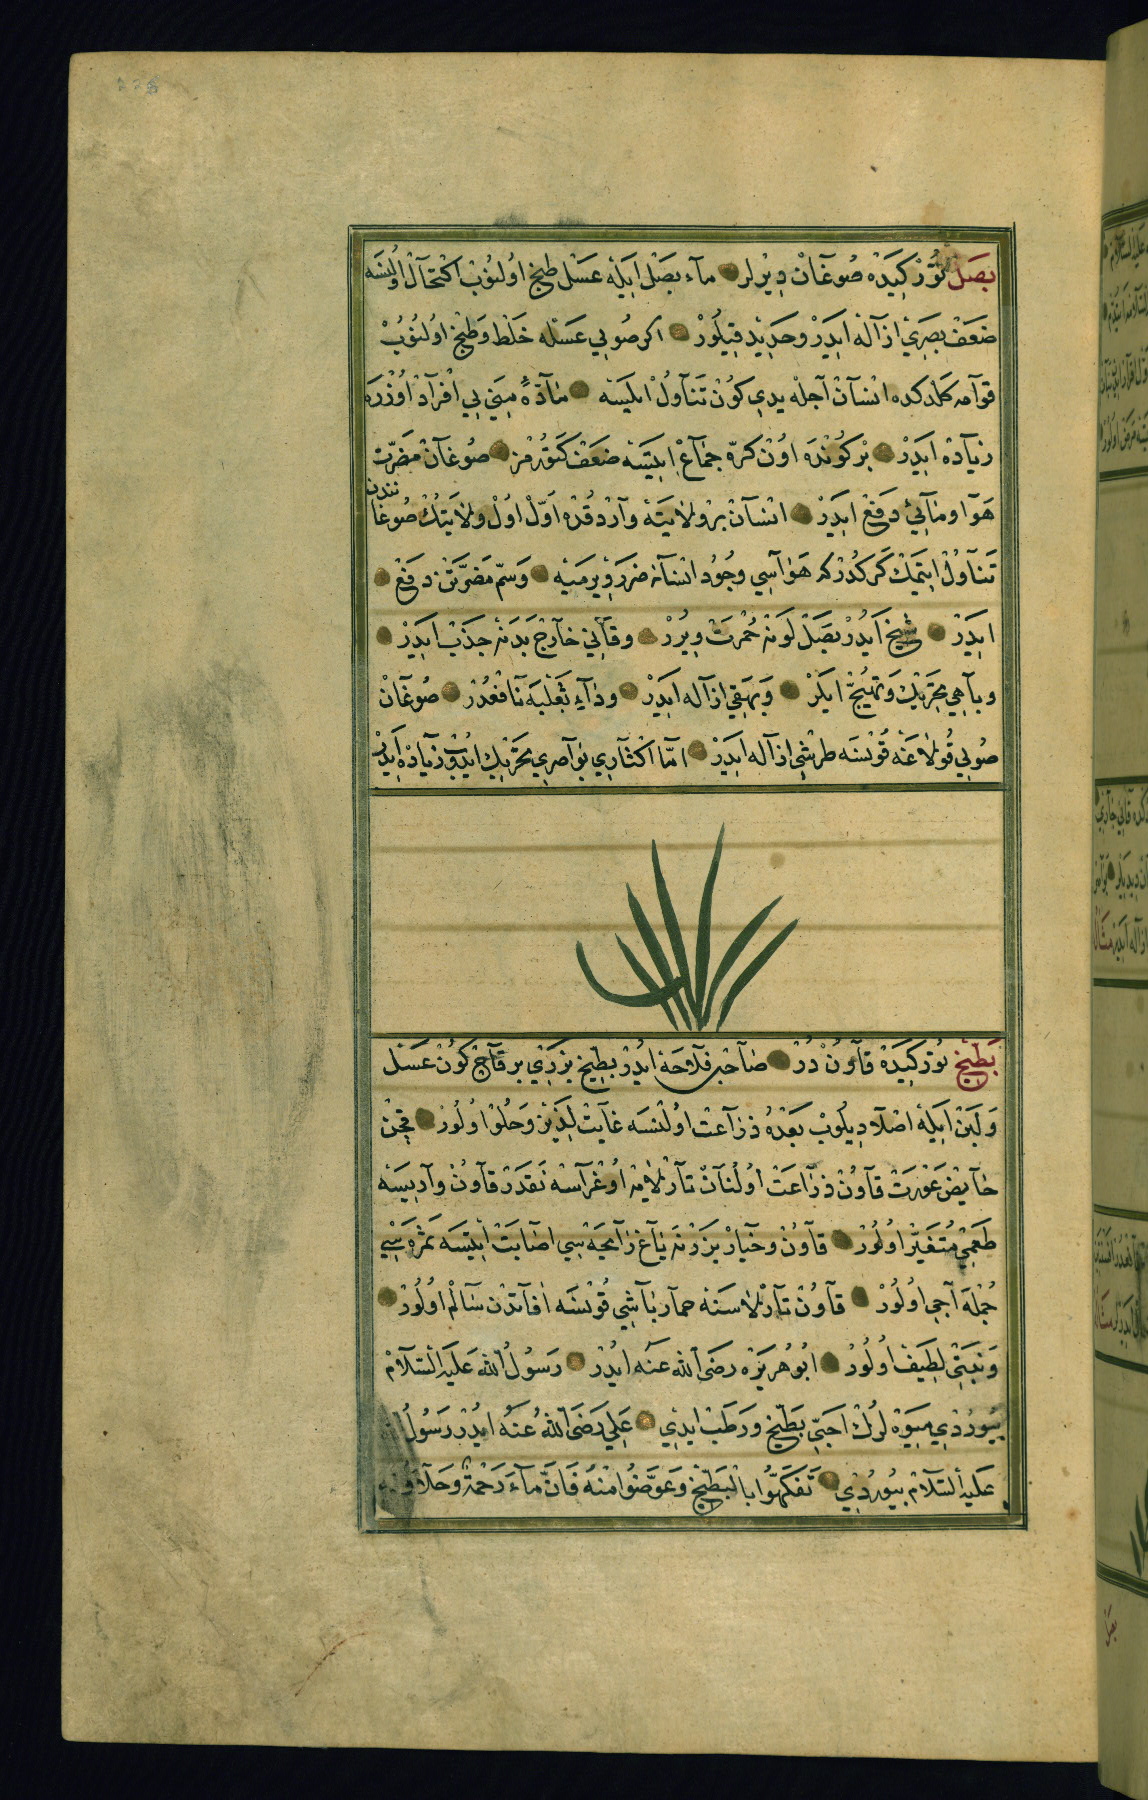 بصل توركیده صوغان دیرلر ماء بصل ایله عسل طبخ اولنوب اكتحال اولنسه
ضعف بصری ازاله ایدر و حدید قیلور اكر صویی عسله خلط و طبخ اولنوب
قوامه كلدكده انسان آجله یدی كون تناول ایلیسه مادۀ منی یی افراد اوزره
زیاده ایدر بر كونده اون كره جماع ایلیسه ضعف كتورمز صوغان مضرت
هوا و مائی دفع ایدر انسان بر ولایته واردقده اول اول ولایتك صوغانندن
تناول ایتمك كركدر كه هواسی وجود انسانه ضرر ویرمیه و سم مضرتن دفع
ایدر شیخ ایدر بصل لونه حمرت ویرر و قانی خارج بدنه جذب ایدر
و باهی تحریك و تهییج ایلر و بهقی ازاله ایدر و داء ثعلبه نافعدر صوغان
صویی قولاغه قونسه طرشی ازاله ایدر اما اكثاری بواصیری تحریك ایدوب زیاده ایدر
بطیخ توركیده قاون در صاحب فلاحه ایدر بطیخ بزری بر قاج كون عسل
و لبن ایله اصلادیلوب بعده زراعت اولنسه غایت لذیذ و حلو اولور قچن
حایض عورت قاون زراعت اولنان تارلایه اوغراسه نقدر قاون وار ایسه
طعمی متغیر اولور قاون و خیار بزرنه یاغ رایحه سی اصابت ایتسه ثمره سی
جمله آجی اولور قاون تارلاسنه حمار باشی قونسه افاتدن سالم اولور
و نبتی لطیف اولور ابو هریره رضی الله عنه ایدر رسول الله علیه السلام
بیوردی میوه لرك احبی بطیخ و رطب ایدی علی رضی الله عنه ایدر رسول الله
علیه السلام بیوردی تفكهوا بالبطیخ وعوضوا منه فان ماءه رحمة وحلاوته